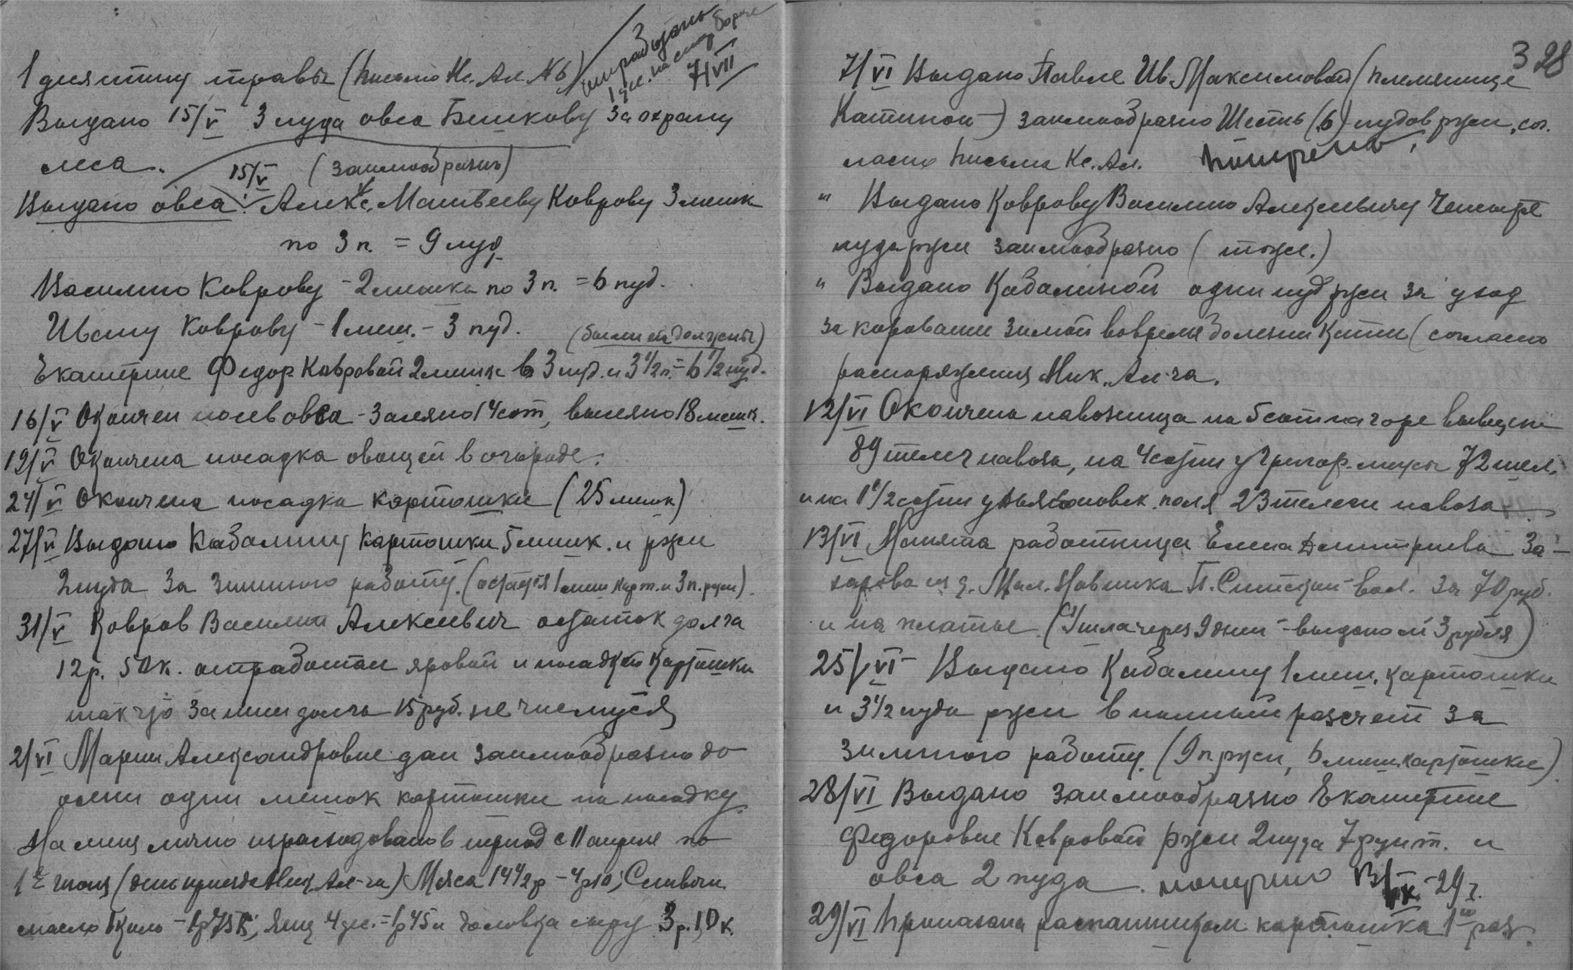 1 десятину травы (письмо Нк. Ал. № 6)
отработано
7/VII
Выдано 15/V 3 пуда овса Бешкову за охрану
леса.
15/V (заимообразно)
Выдано овса: Алекс. Матвееву Коврову 3 мешк
по 3 п = 9 пуд.
Василию Коврову - 2 мешка по 3 п. = 6 пуд.
Ивану Коврову - 1 меш. - 3 пуд.
(были ей должны)
Екатерине Федор Ковровой 2 мешк в 3 пуд. и 3 1/2 п. = 6 1/2 пуд.
16/V Окончен посев овса - Заняло 14 сот, высеяно 18 мешк.
19/V Окончена посадка овощей в огороде.
24/V Окончена посадка картошки (25 мешк)
27/V Выдано Кабалину картошки 5 мешк. и ржи
2 пуда за зимнюю работу. (остается 1 меш карт. и 3 п. ржи).
31/V Ковров Василий Алексеевич остаток долга
12 р. 50 к. отработал яровой и посадкой картошки
так что за ним долга 15 руб. не числится
2/VI Марии Александровне дан заимообразно до
осени один мешок картошки на посадку.
На меня лично израсходовано в период с 11 апреля по
1е июня (день приезда Ник Ал-ча) Мяса 14 1/2 р - 4 р 10, Сливочн.
масло кило - 1 р 75 к, Яиц 4 дес. = 1 р 45 и головка сыру 3 р. 10 к.
3 28
7/VI Выдано Павле Ив. Максимовой (племяннице
Катиной) заимообразно Шесть (6) пудов ржи, сог.
ласно письма Нк. Ал. Получено.
" Выдано Коврову Василию Алексеевичу Четыре
пуда ржи заимообразно (тоже.)
" Выдано Кабалиной один пуд ржи за уход
за коровами зимой во время болезни Кати (согласно
распоряжения Ник. Ал-ча.
12/VI Окончена навозница на 5 сотн на горе вывезли
89 телег навоза, на 4 сотни у Григор. межи 72 тел.
и на 1 1/2 сотни у поля 23 телеги навоза
13/VI Нанята работница Елена Дмитриева За-
харова из д. Мал. Новинка П. волк. за 70 руб.
и на платье (Ушла через 9 дней - выдано ей 3 рубля)
25/VI - Выдано Кабалину 1 меш. картошки
и 3 1/2 пуда ржи в полный расчет за
зимнюю работу. (9 п ржи, 6 меш. картошки)
28/VI Выдано заимообразно Екатерине
Федоровне Ковровой ржи 2 пуда 7 фунт. и
овса 2 пуда. получено 13/IX - 29 г.
29/VI Пропахана распашником картошка 1ый раз.